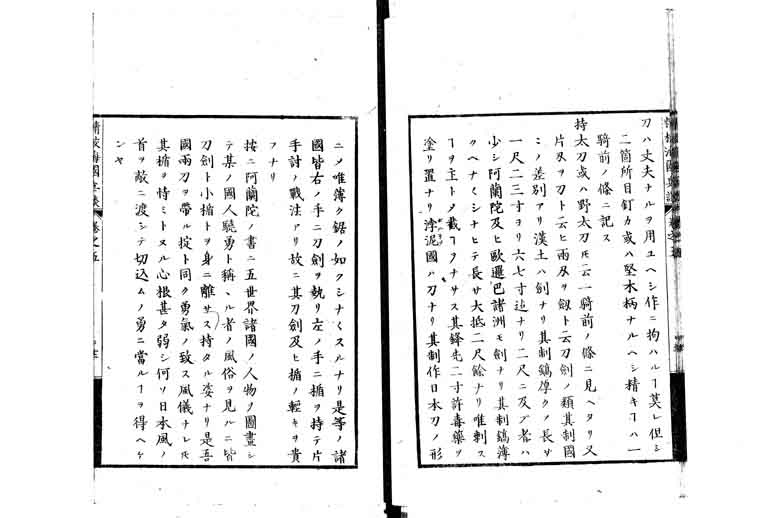 刀ハ丈夫ナルヲ用ユヘシ作ニ拘ハルヿ莫レ但シ
二箇所目釘カ或ハ堅木柄ナルヘシ精キヿハ一
騎前ノ條ニ記ス
持太刀或ハ野太刀𪜈云一騎前ノ條ニ見ヘタリ又
片刄ヲ刀ト云ヒ両刄ヲ劔ト云刀劍ノ類其制國
ミノ差別アリ漢土ハ劍ナリ其制鎬厚クノ長サ
一尺二三寸ヨリ六七寸迠ナリ二尺ニ及ブ者ハ
少シ阿蘭陀及ヒ歐邏巴諸洲モ劍ナリ其制鎬薄
クヘナくシナヒテ長サ大抵二尺餘ナリ唯刺ス
ヿヲ主トメ截ヿヲナサス其鋒先二寸許毒藥ヲ
塗リ置ナリ浡泥國ハ刀ナリ其制作日本刀ノ形
ニメ唯薄ク鋸ノ如クシナくスルナリ是等ノ諸
國皆右ノ手ニ刀劍ヲ執リ左ノ手ニ楯ヲ持テ片
手討ノ戰法アリ故ニ其刀劍及ヒ楯ノ輕キヲ貴
フナリ
按ニ阿蘭陀ノ書ニ五世界諸國ノ人物ヲ圖畫シ
テ某ノ國人驍勇ト稱スル者ノ風俗ヲ見ルニ皆
刀劍ト小楯トヲ身ニ離サス持タル姿ナリ是吾
國兩刀ヲ帶ル掟ト同ク勇氣ノ致ス風儀ナレ𪜈
其楯ヲ恃ミトスル心根甚タ弱シ何ソ日本風ノ
首ヲ敵ニ渡シテ切込ムノ勇ニ當ルヿヲ得ヘケ
ンヤ
精校海國兵談 卷之五